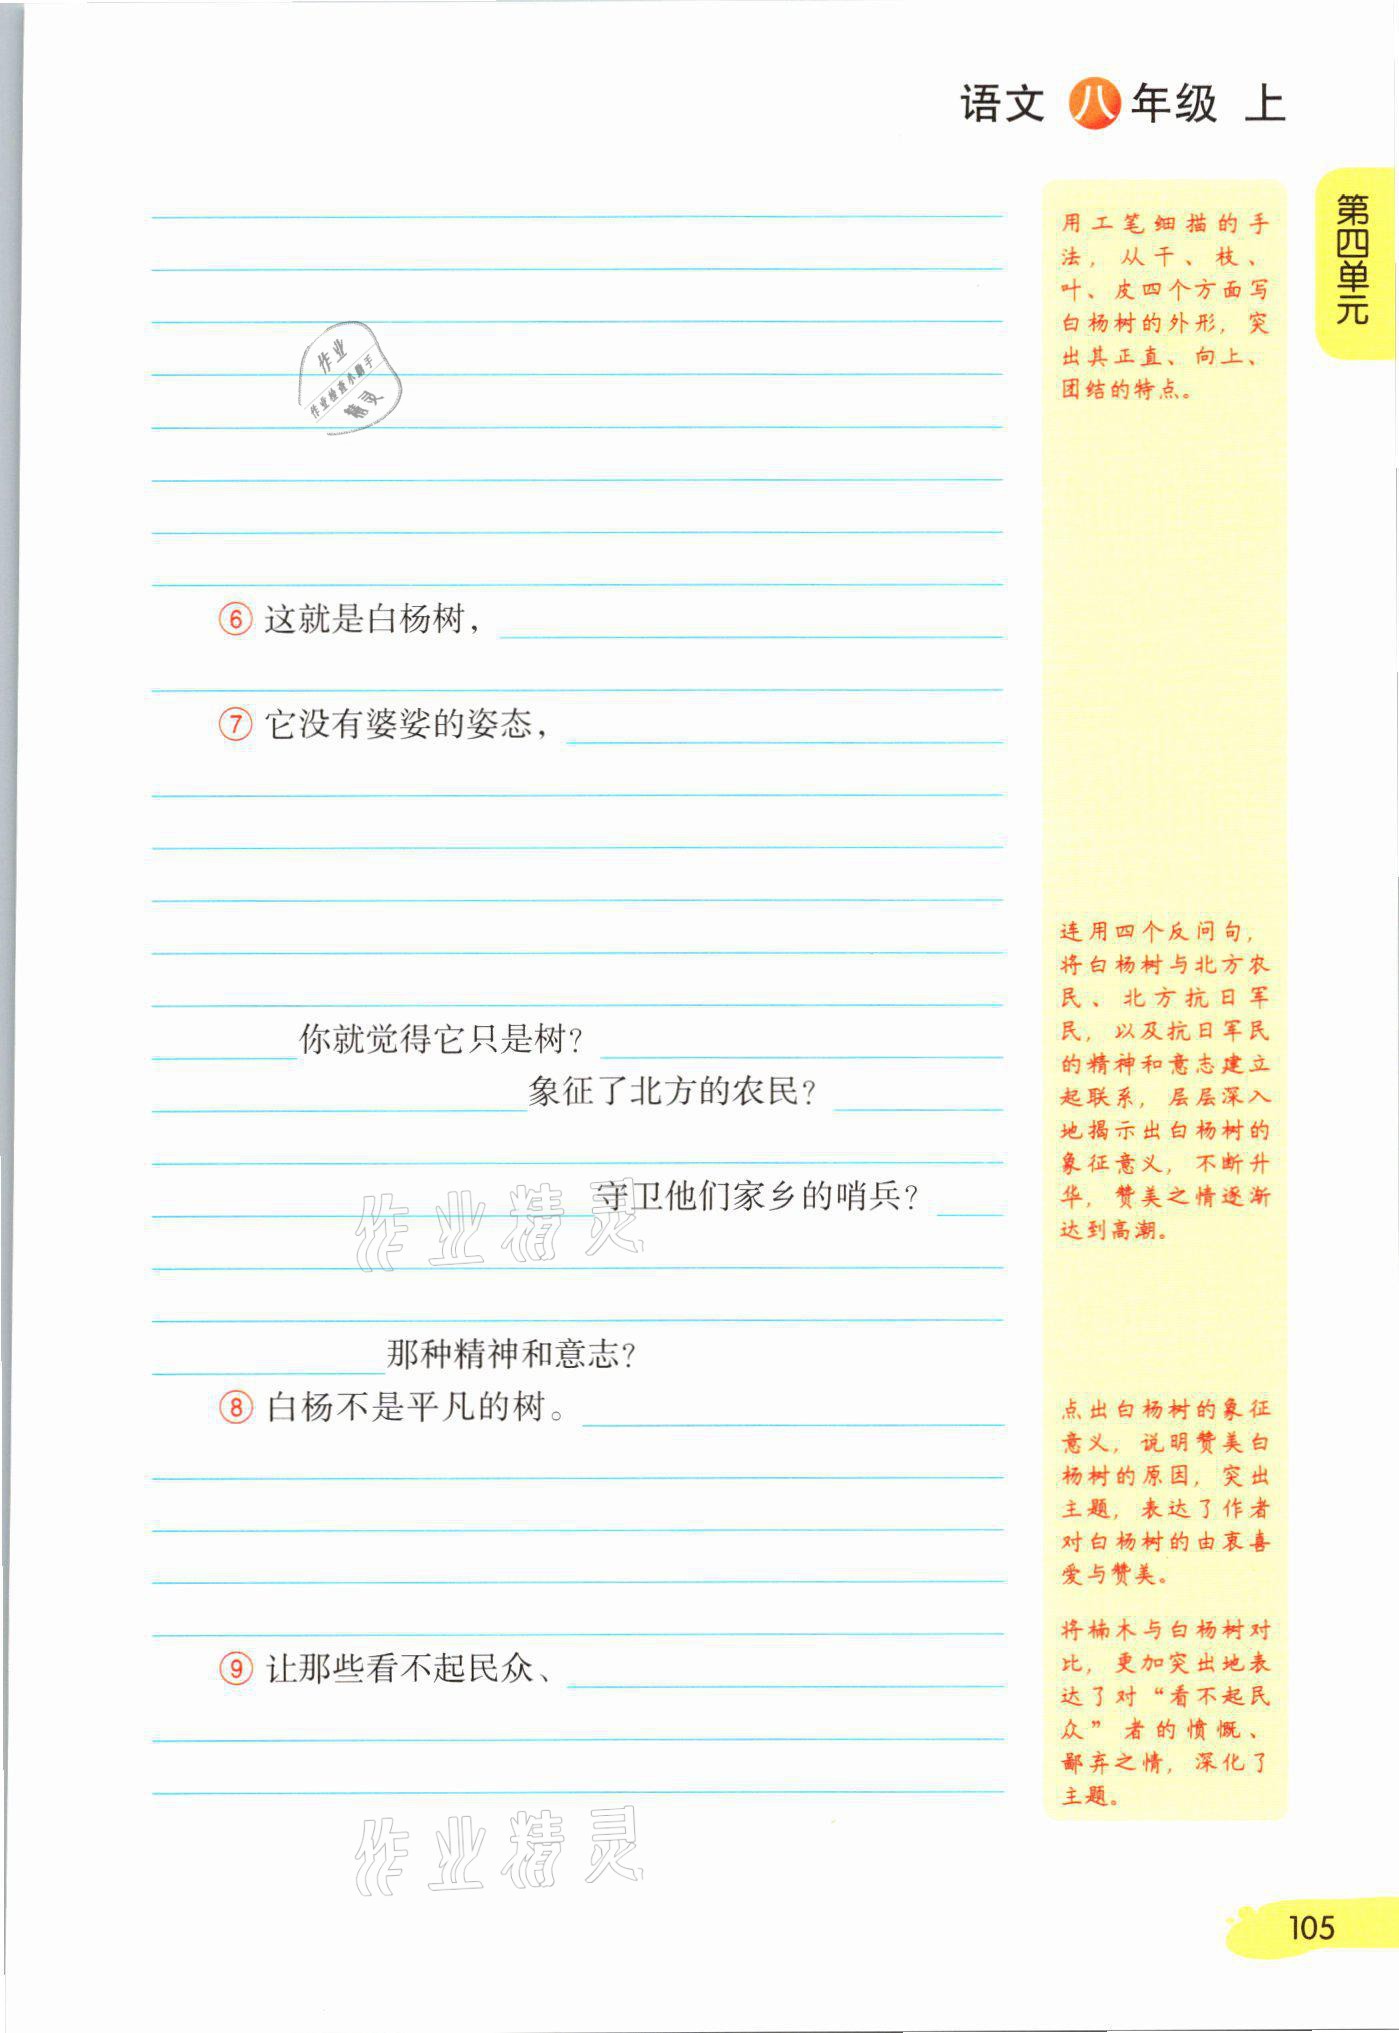 语文 八年级 上
第四单元
用工笔细描的手
法，从干、枝、
叶、皮四个方面写
白杨树的外形，突
出其正直、向上、
团结的特点。
作业
作业检查小助手
精灵
⑥ 这就是白杨树，
⑦ 它没有婆娑的姿态，
连用四个反问句，
将白杨树与北方农
民、北方抗日军
民，以及抗日军民
的精神和意志建立
起联系，层层深入
地揭示出白杨树的
象征意义，不断升
华，赞美之情逐渐
达到高潮。
你就觉得它只是树？
象征了北方的农民？
守卫他们家乡的哨兵？
作业精灵
那种精神和意志？
⑧ 白杨不是平凡的树。
点出白杨树的象征
意义，说明赞美白
杨树的原因，突出
主题，表达了作者
对白杨树的由衷喜
爱与赞美。
⑨ 让那些看不起民众、
将楠木与白杨树对
比，更加突出地表
达了对“看不起民
众”者的愤慨、
鄙弃之情，深化了
主题。
作业精灵
105